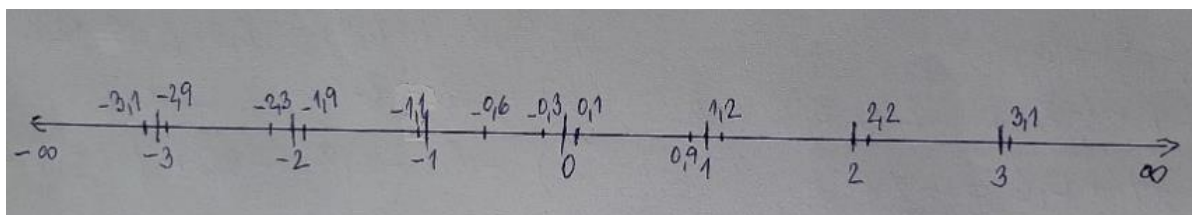 -3,1 -2,9 -2,3 -1,9 -1,1 -0,6 -0,3 0,1 1,2 2,2 3,1
-∞ -3 -2 -1 0 0,9 1 2 3 ∞